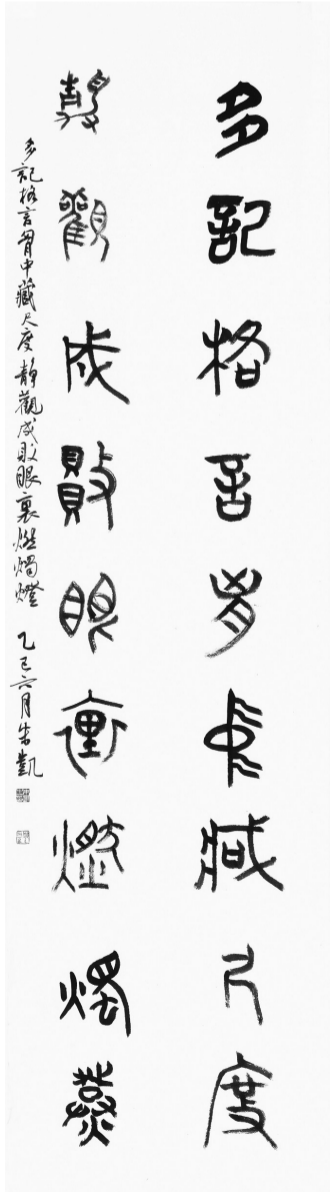 多記格言胷中藏尺度
靜觀成敗眼裏燃燭燈
多記格言胷中藏尺度靜觀成敗眼裏燃燭燈 乙巳六月朱凱